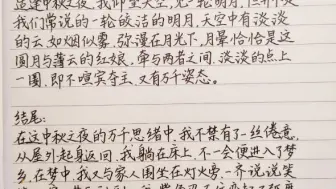 我们常说的一轮皎洁的明月,天空中有淡淡
的云,如烟似雾,弥漫在月光下,月晕恰恰是这
圆月与薄云的红娘,牵与两者之间,淡淡的点上
一圈,即不喧宾夺主,又有万千姿态。
结尾:
在这中秋之夜的万千思绪中,我不禁有了一丝倦意,
从屋外起身返回,我躺在床上,不一会便进入了梦
乡,在梦中,我又与家人围坐在灯火旁,一齐说说笑